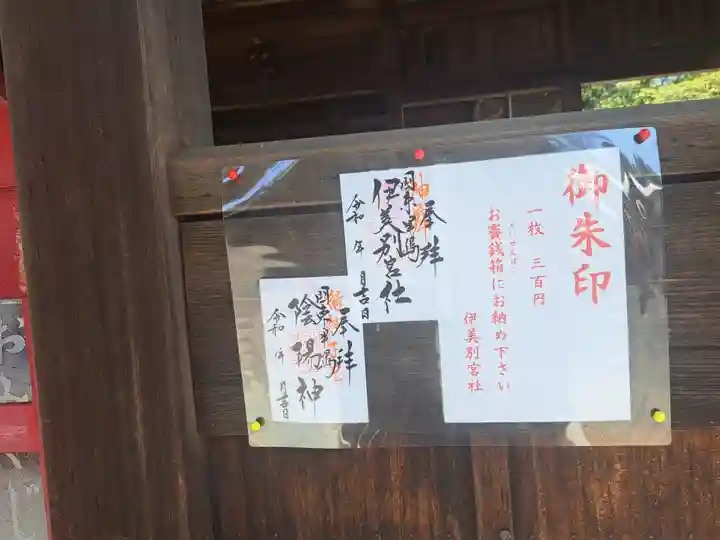 御朱印
一枚 三百円
お賽銭箱にお納め下さい
さいせんばこ
伊美別宮社
奉拝
伊美別宮社
令和 年 月吉日
奉拝
陰陽神
令和 年 月吉日